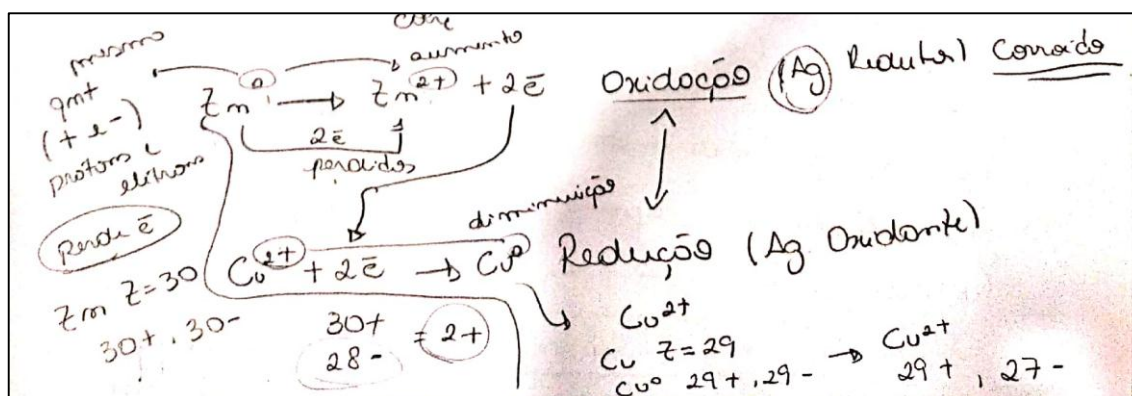 mesmo
qnt
(+ e -)
prótons e
elétrons
perde ē
Zn Z=30
30+, 30-
aumento
Zn⁰ → Zn²⁺ + 2ē
2ē
perdidos
Oxidação (Ag Redutor) Corroído
diminuição
Cu²⁺ + 2ē → Cu⁰ Redução (Ag. Oxidante)
30+
28- = 2+
Cu²⁺
Cu Z=29
Cu⁰ 29+, 29- → Cu²⁺
29+, 27-